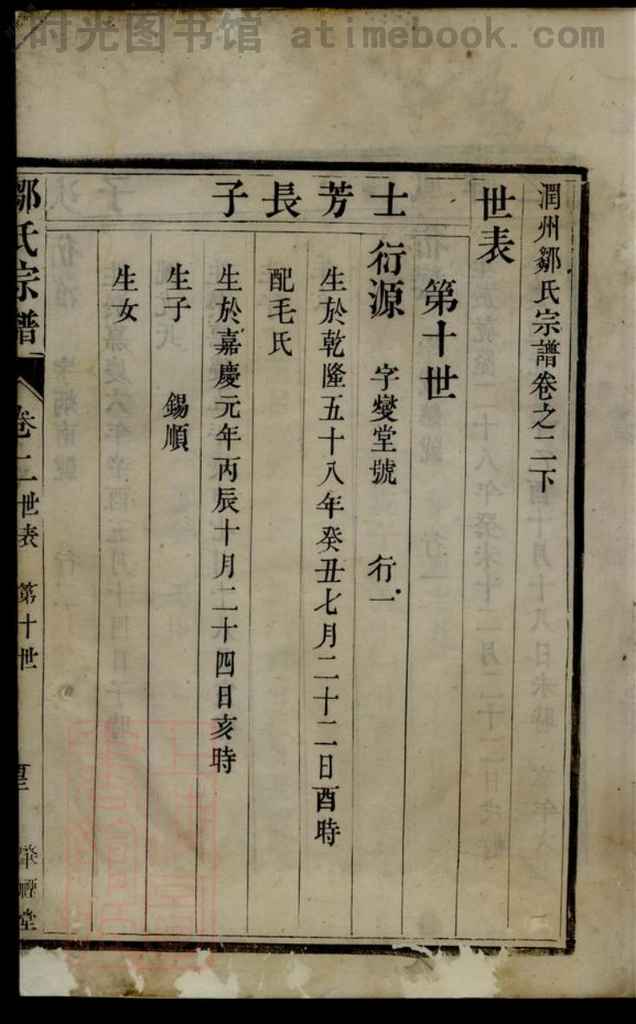 时光图书馆 atimebook.com
潤州鄒氏宗譜卷之二下
世表
第十世
士芳長子
衍源 字燮堂號 行一
生於乾隆五十八年癸丑七月二十二日酉時
配毛氏
生於嘉慶元年丙辰十月二十四日亥時
生子 錫順
生女
鄒氏宗譜 卷二 世表 第十世